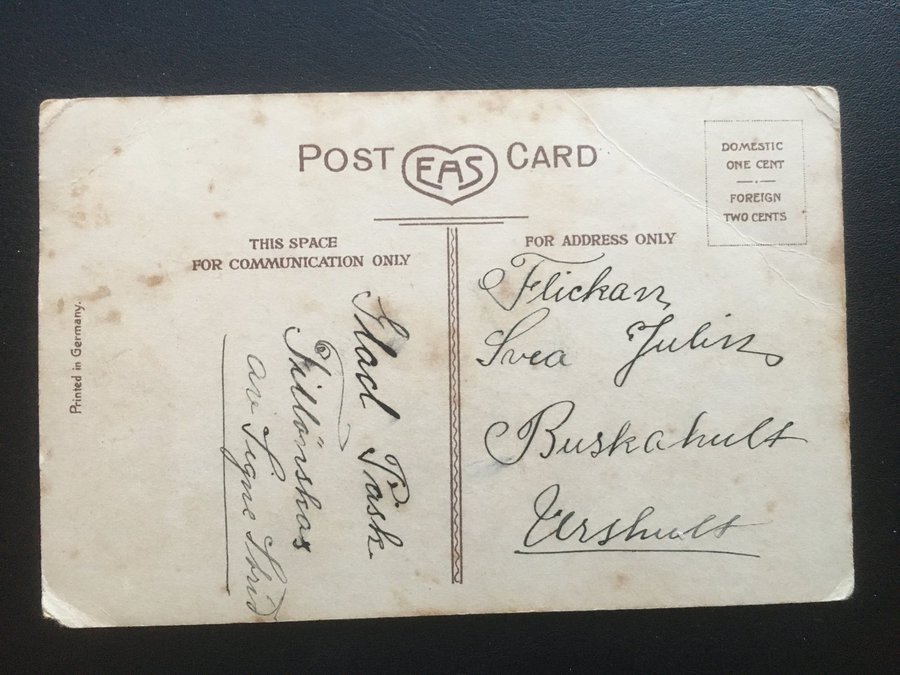 POST EAS CARD
DOMESTIC
ONE CENT
FOREIGN
TWO CENTS
THIS SPACE
FOR COMMUNICATION ONLY
FOR ADDRESS ONLY
Printed in Germany.
Glad Påsk
Tillönskas
av Signe
Flickan
Svea Julin
Buskahult
Urshult